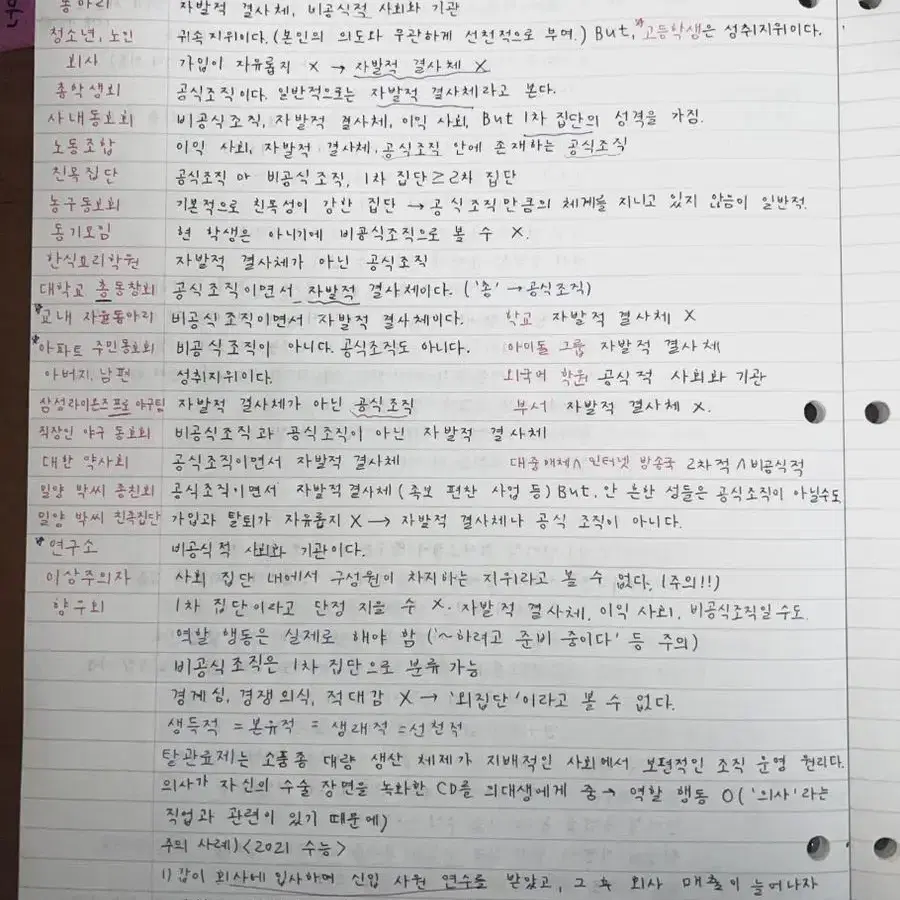 동아리 자발적 결사체, 비공식적 사회화 기관
청소년, 노인 귀속지위이다. (본인의 의도와 무관하게 선천적으로 부여.) But, 고등학생은 성취지위이다.
회사 가입이 자유롭지 X → 자발적 결사체 X
총학생회 공식조직이다. 일반적으로는 자발적 결사체라고 본다.
사내동호회 비공식조직, 자발적 결사체, 이익 사회, But 1차 집단의 성격을 가짐.
노동조합 이익 사회, 자발적 결사체, 공식조직 안에 존재하는 공식조직
친목집단 공식조직 아 비공식조직, 1차 집단≥2차 집단
농구동호회 기본적으로 친목성이 강한 집단 → 공식조직만큼의 체계를 지니고 있지 않음이 일반적.
동기모임 현 학생은 아니기에 비공식조직으로 볼 수 X.
한식요리학원 자발적 결사체가 아닌 공식조직
대학교 총동창회 공식조직이면서 자발적 결사체이다. ('총' → 공식조직)
교내 자율동아리 비공식조직이면서 자발적 결사체이다. 학교 자발적 결사체 X
아파트 주민동호회 비공식조직이 아니다. 공식조직도 아니다. 아이돌 그룹 자발적 결사체
아버지, 남편 성취지위이다. 외국어 학원 공식적 사회화 기관
삼성라이온즈 프로 야구팀 자발적 결사체가 아닌 공식조직 부서 자발적 결사체 X.
직장인 야구 동호회 비공식조직과 공식조직이 아닌 자발적 결사체
대한 약사회 공식조직이면서 자발적 결사체 대중매체∧인터넷 방송국 2차적∧비공식적
밀양 박씨 종친회 공식조직이면서 자발적결사체 (족보 편찬 사업 등) But. 안 흔한 성들은 공식조직이 아닐수도
밀양 박씨 친족집단 가입과 탈퇴가 자유롭지 X → 자발적 결사체나 공식 조직이 아니다.
연구소 비공식적 사회화 기관이다.
이상주의자 사회 집단 내에서 구성원이 차지하는 지위라고 볼 수 없다. (주의!!)
향우회 1차 집단이라고 단정 지을 수 X. 자발적 결사체, 이익 사회, 비공식조직일 수도.
역할 행동은 실제로 해야 함 ('~하려고 준비 중이다' 등 주의)
비공식조직은 1차 집단으로 분류 가능
경계심, 경쟁의식, 적대감 X → '외집단'이라고 볼 수 없다.
생득적 = 본유적 = 생래적 = 선천적
탈관료제는 소품종 대량 생산 체제가 지배적인 사회에서 보편적인 조직 운영 원리다.
의사가 자신의 수술 장면을 녹화한 CD를 의대생에게 줌 → 역할 행동 O ('의사'라는
직업과 관련이 있기 때문에)
주의 사례) <2021 수능>
1) 갑이 회사에 입사하여 신입 사원 연수를 받았고, 그 후 회사 매출이 늘어나자